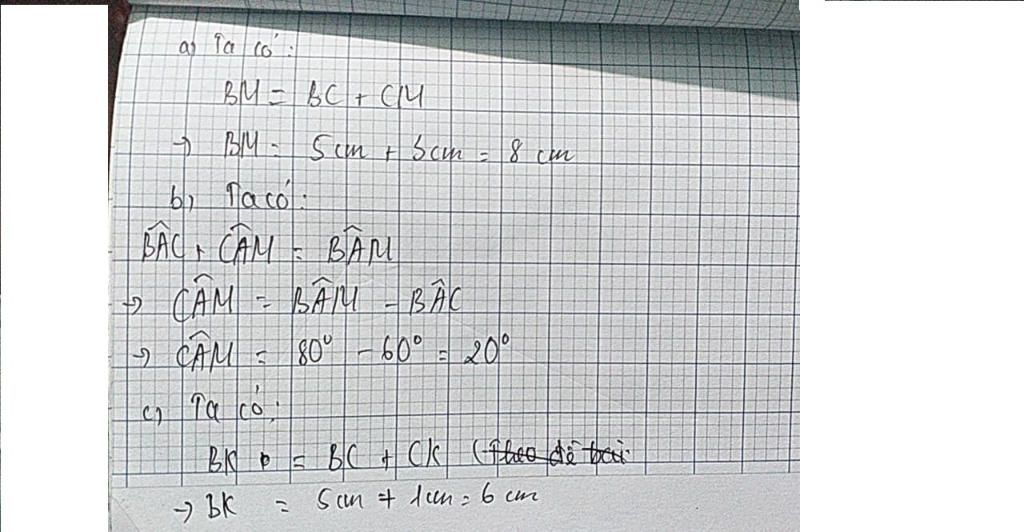 a) Ta có:
BM = BC + CM
→ BM = 5cm + 3cm = 8 cm
b) Ta có:
BÂC + CÂM = BÂM
→ CÂM = BÂM - BÂC
→ CÂM = 80° - 60° = 20°
c) Ta có:
BK = BC + CK (Theo đề bài
→ BK = 5cm + 1cm = 6 cm